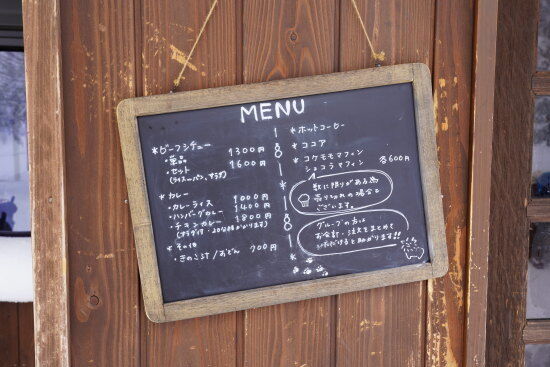 MENU
*ビーフシチュー
・単品 1300円
・セット 1600円
(ライスorパン、サラダ)
*カレー
・カレーライス 1000円
・ハンバーグカレー 1400円
・チキンカレー 1800円
かかります)
*その他
・きのこ汁/おでん 700円
*ホットコーヒー
*ココア
*コケモモマフィン
ショコラマフィン
各600円
数に限りがある為
売り切れの場合も
ございます。
グループの方は
お会計・注文をまとめて
頂けると助かります!!